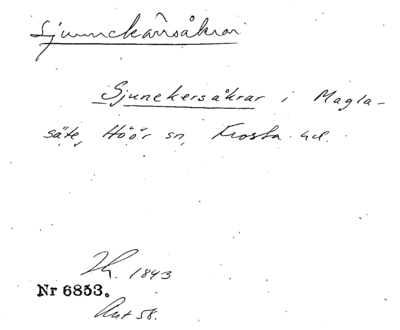 Sjunnckärrsåkrar
Sjunekersåkrar i Magla-
säte, Höör sn, Frosta hd.
Th. 1843
Nr 6853.
Ant 58.